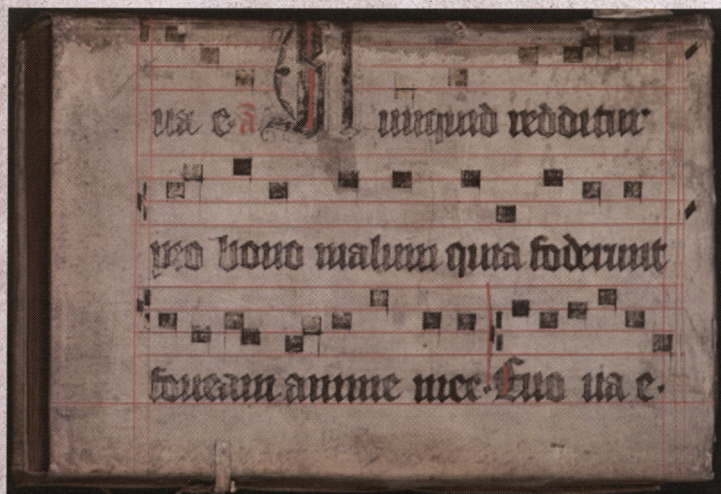 ua e a Nunquid redditur
pro bono malum quia foderunt
foueam anime mee. Euo ua e.